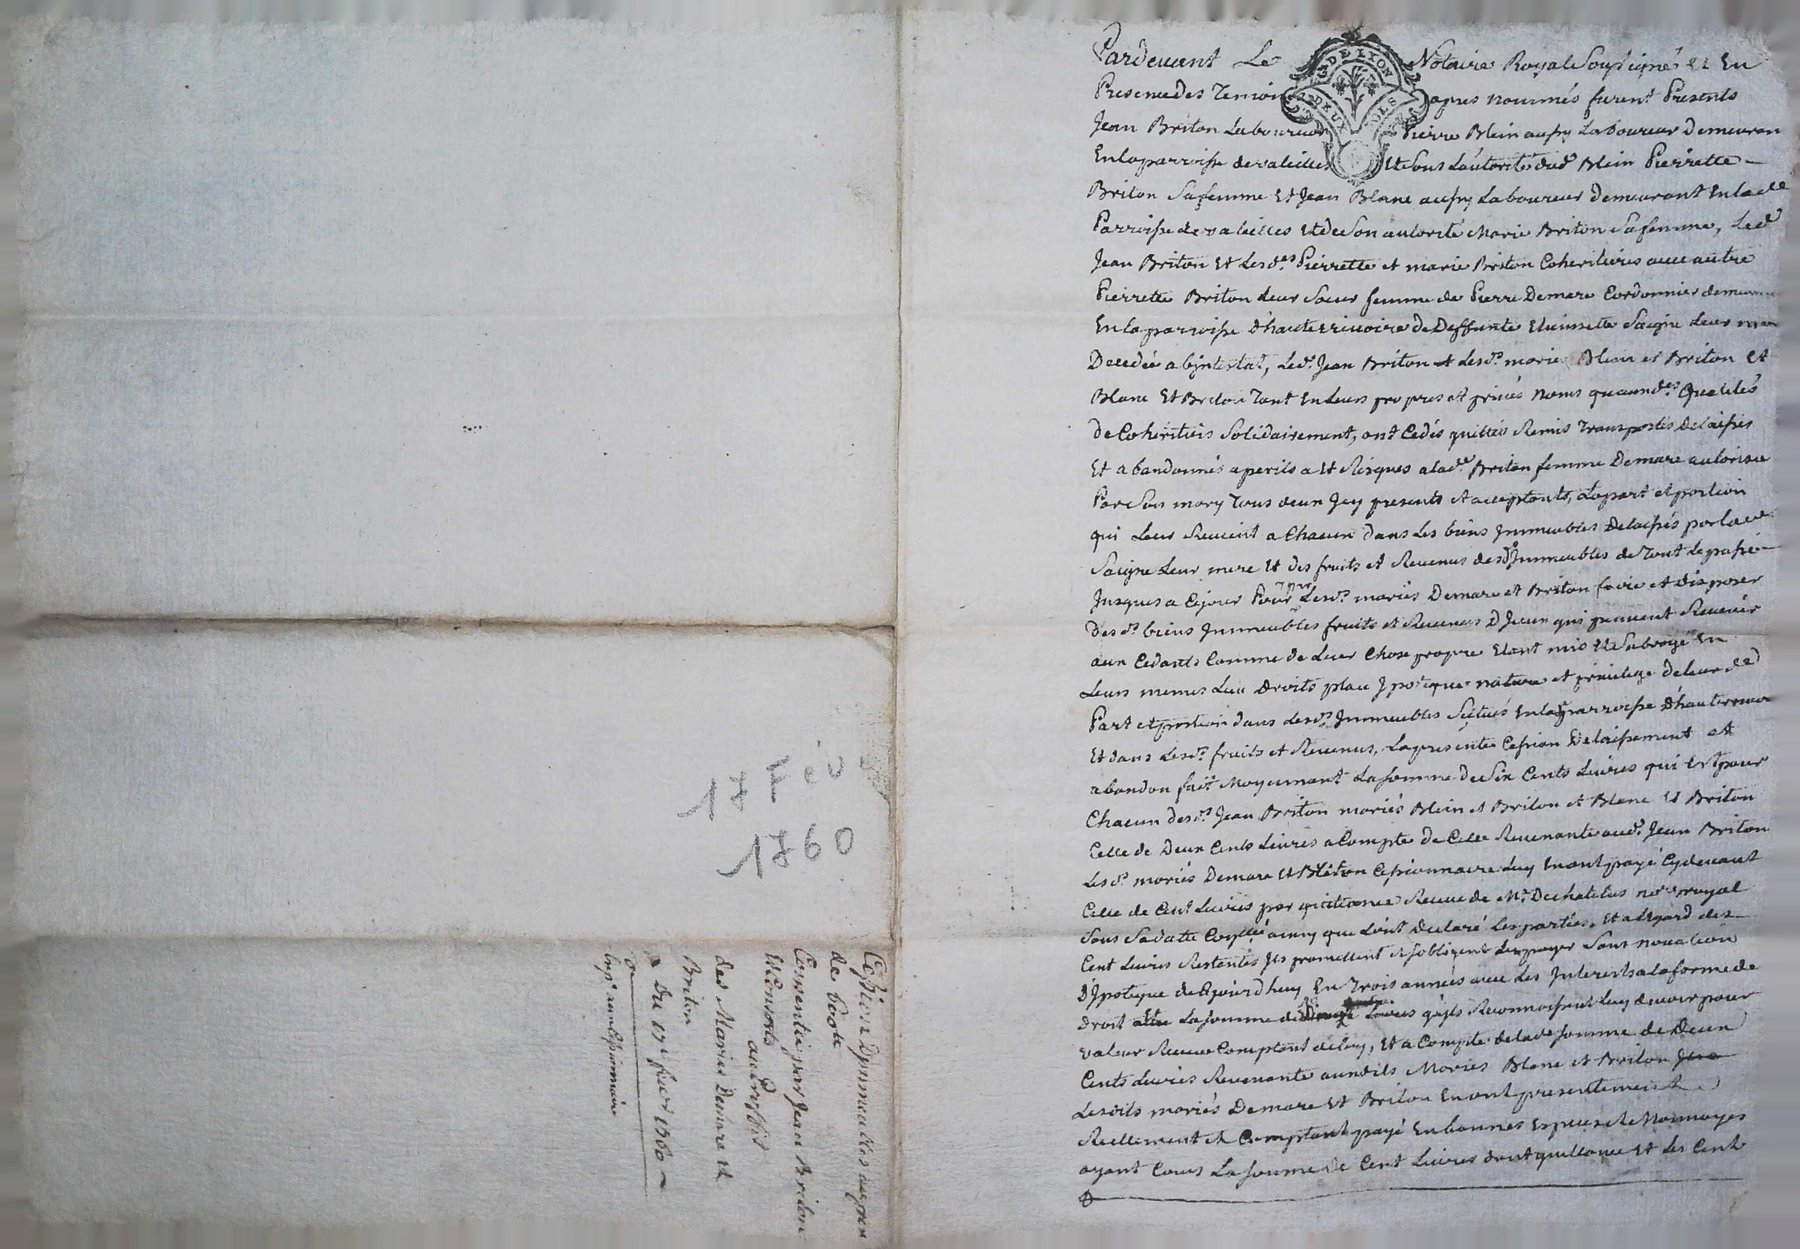 17 Fév
1760
Cession D'immeubles
de
Consentie par Jean Briton
Et Consorts
au proffit
des Mariés Demare et
Briton
Du 17e fever 1760
Exp.on aux Cessionnaire
G DE LYON
DEUX SOLS
Pardevant Le Notaire Royal Soussigné et En
Presence des Temoins apres nommés furent Presents
Jean Briton Laboureur Pierre Blein aussy Laboureur Demeuran
En la parroisse de valeilles Et Sous L'autorité dud Blein Pierrette
Briton Sa femme Et Jean Blanc aussy Laboureur Demeurant En lade
Parroisse de valeilles Et de Son autorité Marie Briton Sa femme, Led
Jean Briton Et Lesdes Pierrette et marie Briton Coheritieres avec autre
Pierrette Briton Leur Soeur femme de Pierre Demare Cordonnier demeurant
En la parroisse d'hauterivoire de Deffunte Saigne Leur mere
Decedée abintestat, Led. Jean Briton et Lesd. mariés Blein et Briton Et
Blanc Et Briton Tant En Leurs propres et privés Noms qu'auxdes Qualités
de Coheritiers Solidairement, ont Cedés quittés Remis Transportés Delaissés
Et abandonnés a perils Et Risques a lade Briton femme Demare autorisée
Par Son mary Tous deux Jcy presents et acceptants, La part et portion
qui Leur Revient a Chacun dans Les biens Immeubles Delaissés par lade
Saigne Leur mere Et des fruits et Revenus desd Immeubles de Tout le passé
Jusques a Cejour Pour Lesd. mariés Demare et Briton faire et disposer
Desd. biens Immeubles fruits et Revenus D'Jceux qui peuvent Revenir
aux Cedants Comme de Leur Chose propre Etant mis Et Subrogé En
Leurs memes Lieu Droits place Jpoteque nature et privilege de leurde
Part et portion dans Lesd. Immeubles Scitués En lade parroisse D'hauterivoire
Et dans Lesd. fruits et Revenus, La presente Cession Delaissement et
abandon fait Moyennant La somme de Six Cents Livres qui Est pour
Chacun desd. Jean Briton mariés Blein et Briton et Blanc Et Briton
Celle de Deux Cents Livres a Compte de Celle Revenante aud. Jean Briton
Lesd. mariés Demare Et Briton Cessionnaire Luy En ont payé Cydevant
Celle de Cent Livres par quittance Receue de Me Dechatelus nore royal
Sous Sa datte ainsy que L'ont Declaré Les parties, Et a L'Egard des
Cent Livres Restantes Jls promettent et S'obligent Les payer Sans novation
D'Jpoteque de Cejourd'huy En Trois années avec Les Jnterets a la forme de
Droit La somme de Livres qu'jls Reconnoissent Luy devoir pour
valeur Receue Comptant de luy, Et a Compte de lade somme de Deux
Cents Livres Revenante auxdits Mariés Blanc et Briton
Lesdits mariés Demare Et Briton En ont presentement
Reellement et Comptant payé En bonnes Especes et Monnoyes
ayant Cours La somme de Cent Livres dont quittance Et les Cent